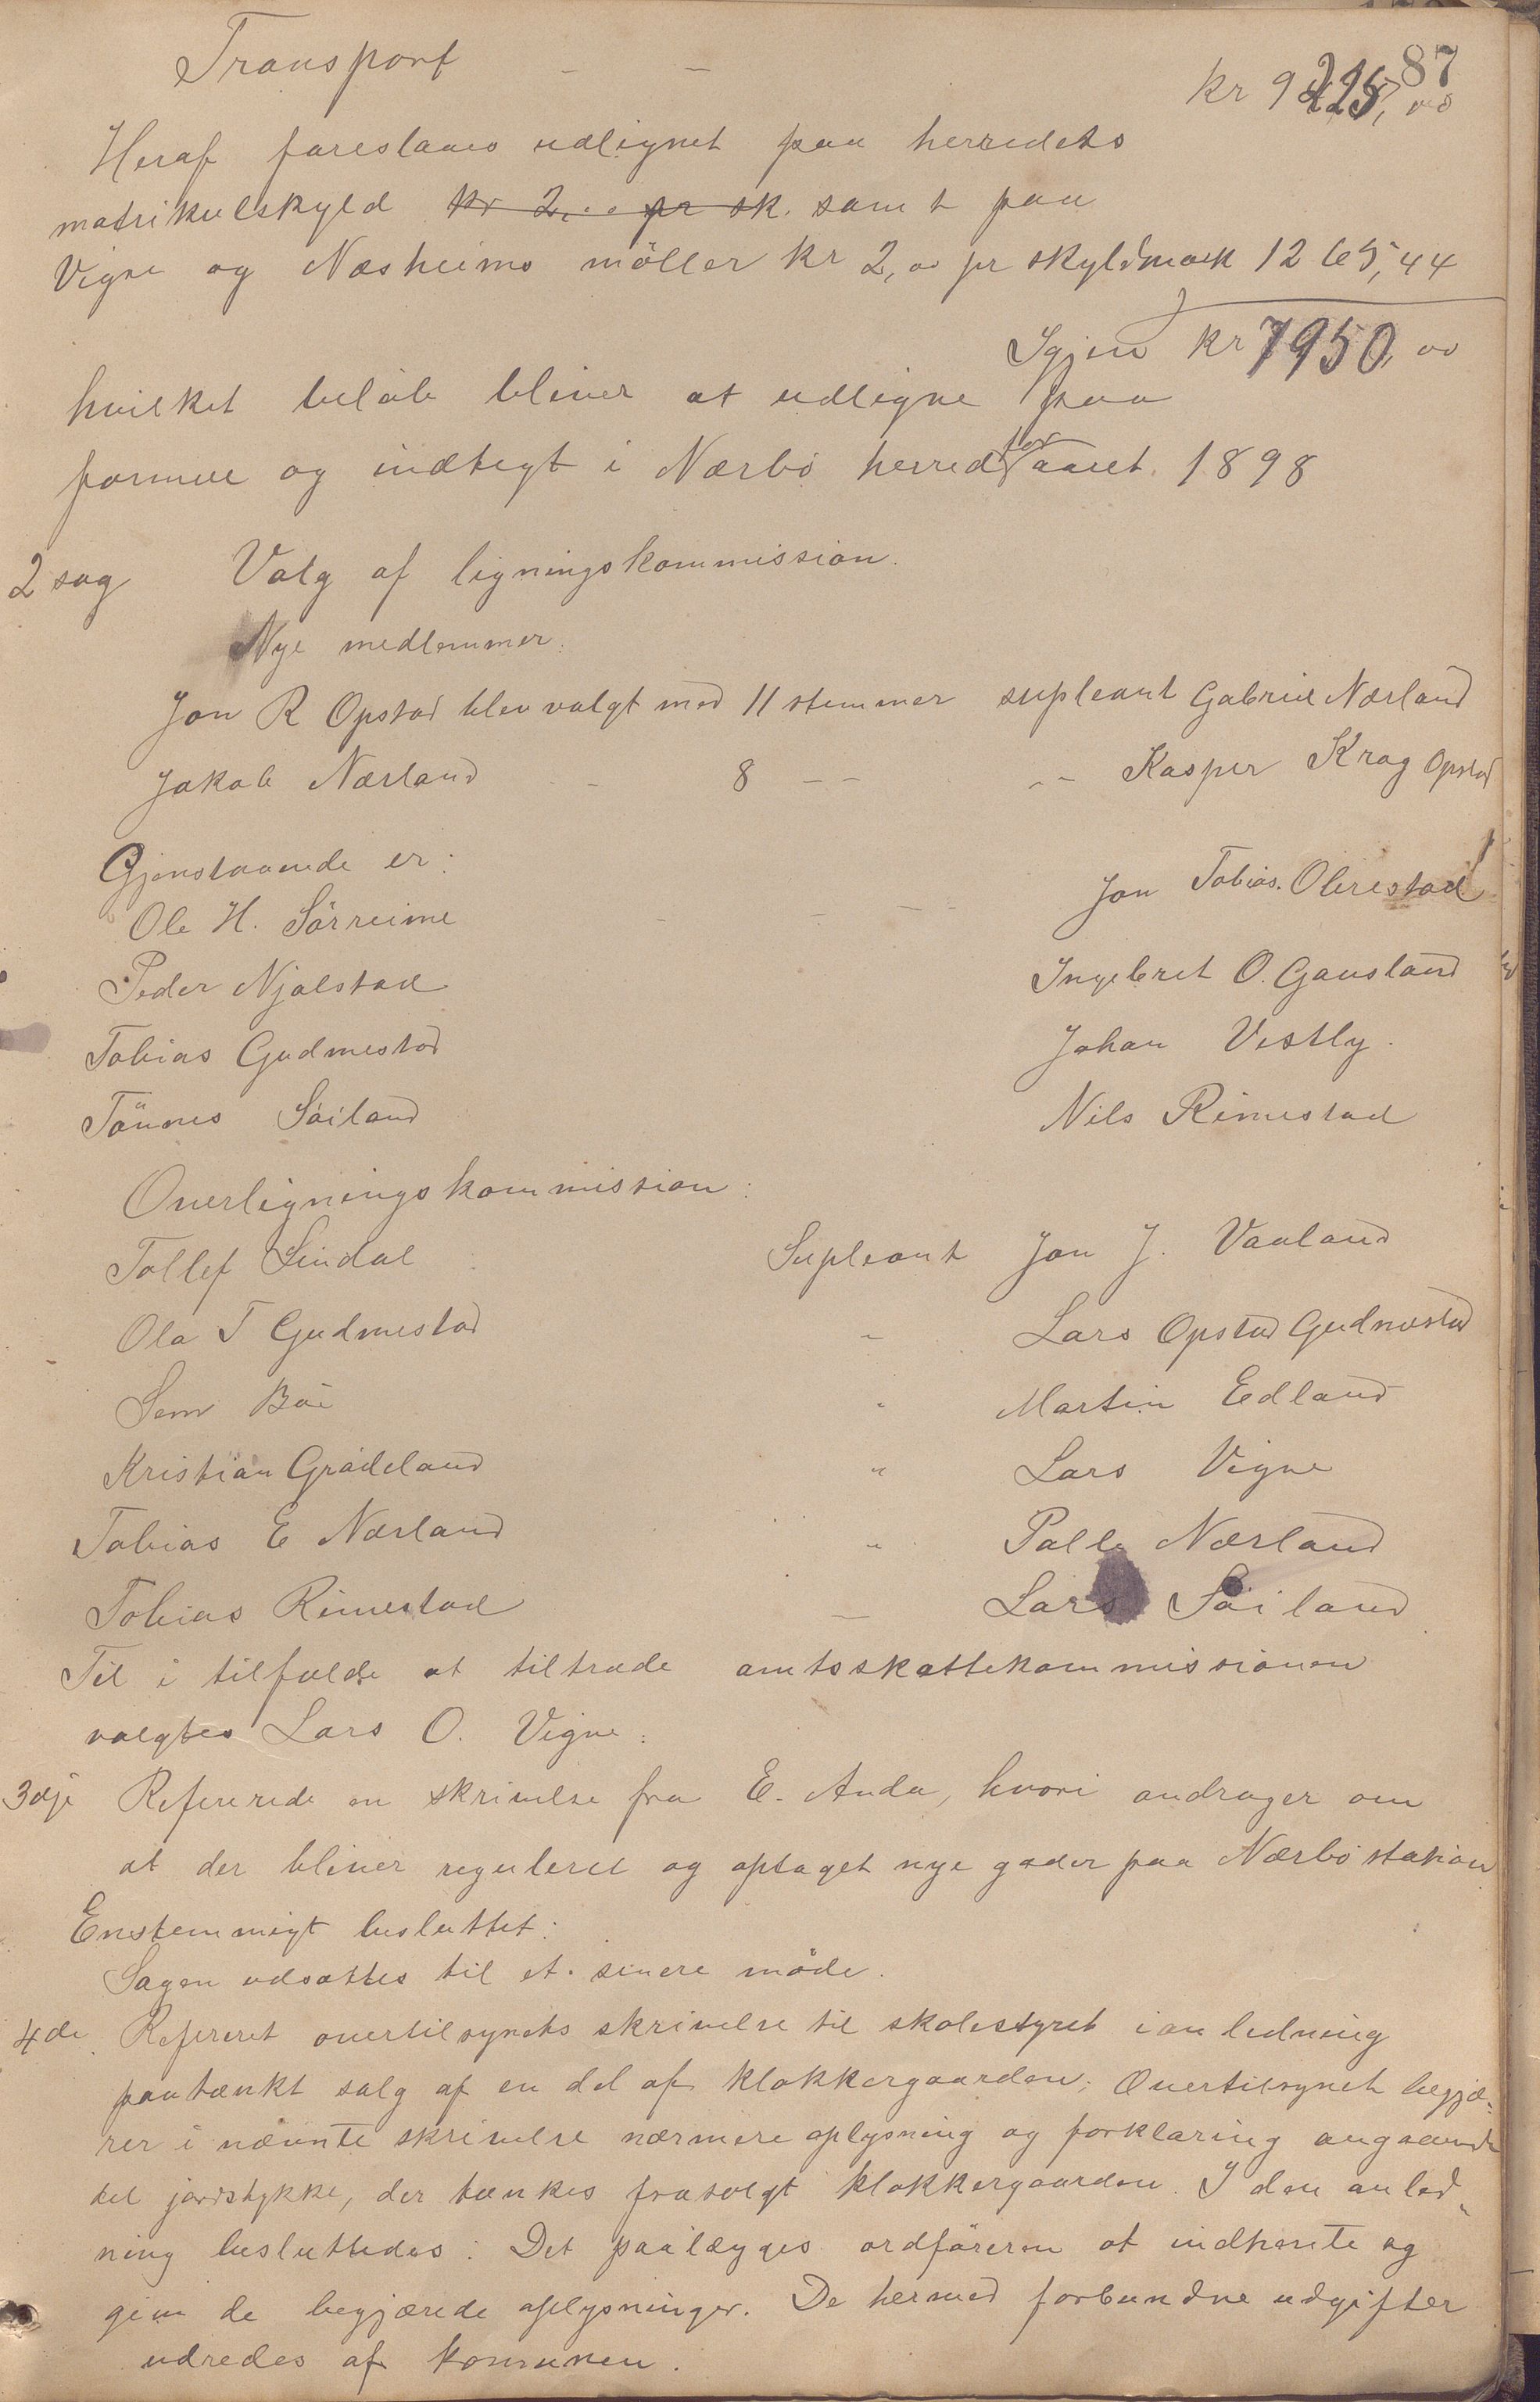 87
Transport - - kr 9215,00
Heraf foreslaaes udlignet paa herredets
matrikulskyld kr 2,00 pr sk. samt paa
Vigre og Næsheims möller kr 2,00 pr skyldmark 1265,44
Igjen kr 7950,00
hvilket belöb bliver at udligne paa
formue og indtegt i Nærbö herred for aaret 1898
2 sag Valg af ligningskommission.
Nye medlemmer:
Jon R Opstad blev valgt med 11 stemmer supleant Gabriel Nærland
Jakob Nærland - 8 - - - - Kasper Krag Opstad
Gjenstaaende er:
Ole H. Sörreime - - - - Jon Tobias. Obrestad
Peder Njolstad Ingebret O. Gausland
Tobias Gudmestad Johan Vestly.
Tönnes Söiland Nils Rimestad
Overligningskommission:
Tollef Lindal Supleant Jon J. Vaaland
Ola T Gudmestad - Lars Opstad Gudmestad
Sem Böe " Martin Edland
Kristian Grödeland " Lars Vigre
Tobias E Nærland " Palle Nærland
Tobias Rimestad - Lars Söiland
Til i tilfælde at tiltræde amtsskattekommissionen
valgtes Lars O. Vigre.
3dje Refererede en skrivelse fra E. Anda, hvori andrager om
at der bliver reguleret og optaget nye gader paa Nærbö station
Enstemmigt besluttet:
Sagen udsættes til et senere möde.
4de Refereret overtilsynets skrivelse til skolestyret i anledning
paatænkt salg af en del af klokkergaarden; Overtilsynet begjæ-
rer i nævnte skrivelse nærmere oplysning og forklaring angaaende
det jordstykke, der tænkes frasolgt klokkergaarden. I den anled-
ning besluttedes: Det paalægges ordföreren at indhente og
give de begjærede oplysninger. De hermed forbundne udgifter
udredes af komunen.